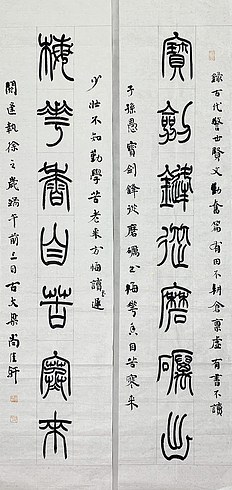 録古代警世賢文勤奮篇有田不耕倉稟虛有書不讀
寶劍鏠從磨礪出
子孫愚寶劍鋒從磨礪出梅花香自苦寒来
少壯不知勤學苦老来方悔讀書遲
梅華香自苦寒來
閼逢執徐之歲端午前三日古大梁尚佳軒